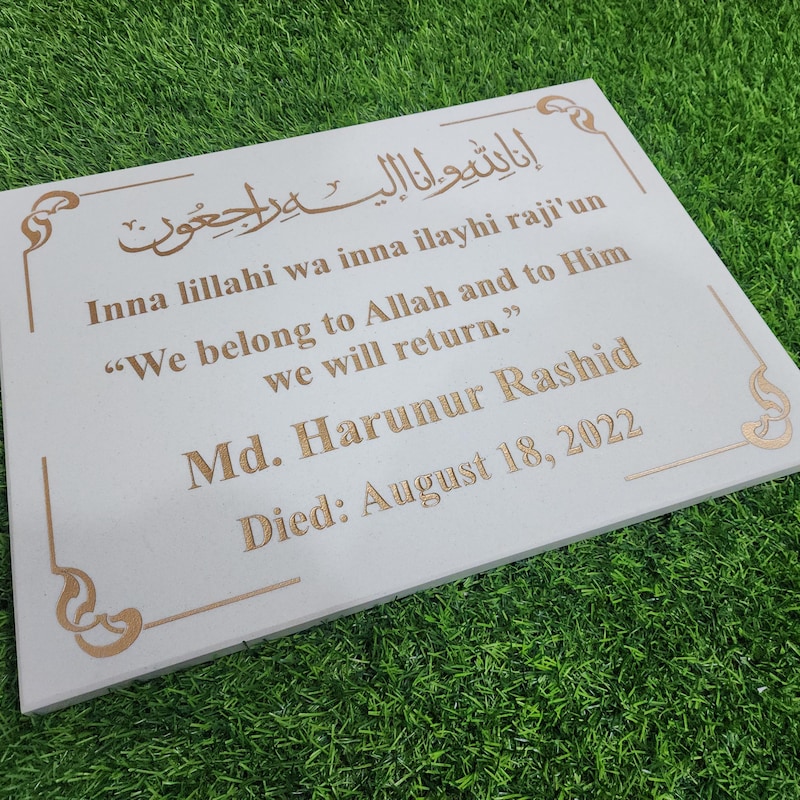 إنا لله وإنا إليه راجعون
Inna lillahi wa inna ilayhi raji'un
“We belong to Allah and to Him
we will return.”
Md. Harunur Rashid
Died: August 18, 2022